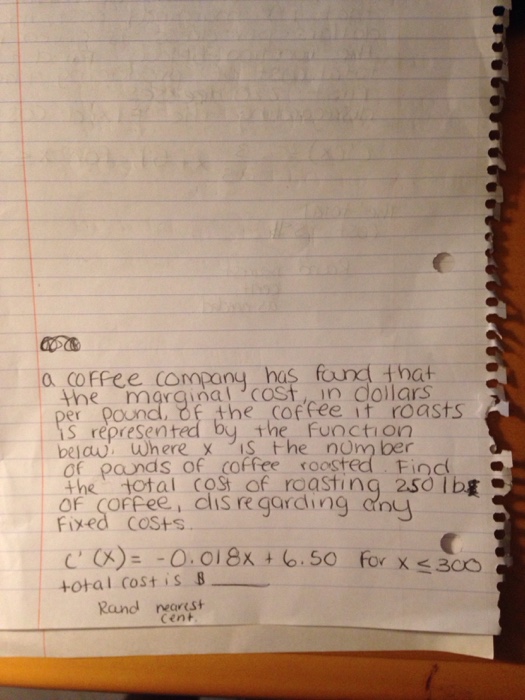 a coffee company has fand that
the marginal cost, in dollars
per pound, of the coffee it roasts
is represented by the function
below, where x is the number
of pands of coffee roosted. Find
the total cost of roasting 250 lbs
of coffee, disregarding any
fixed costs.
C'(x) = -0.018x + 6.50 for x ≤ 300
total cost is $ ____
Rand nearest
cent.